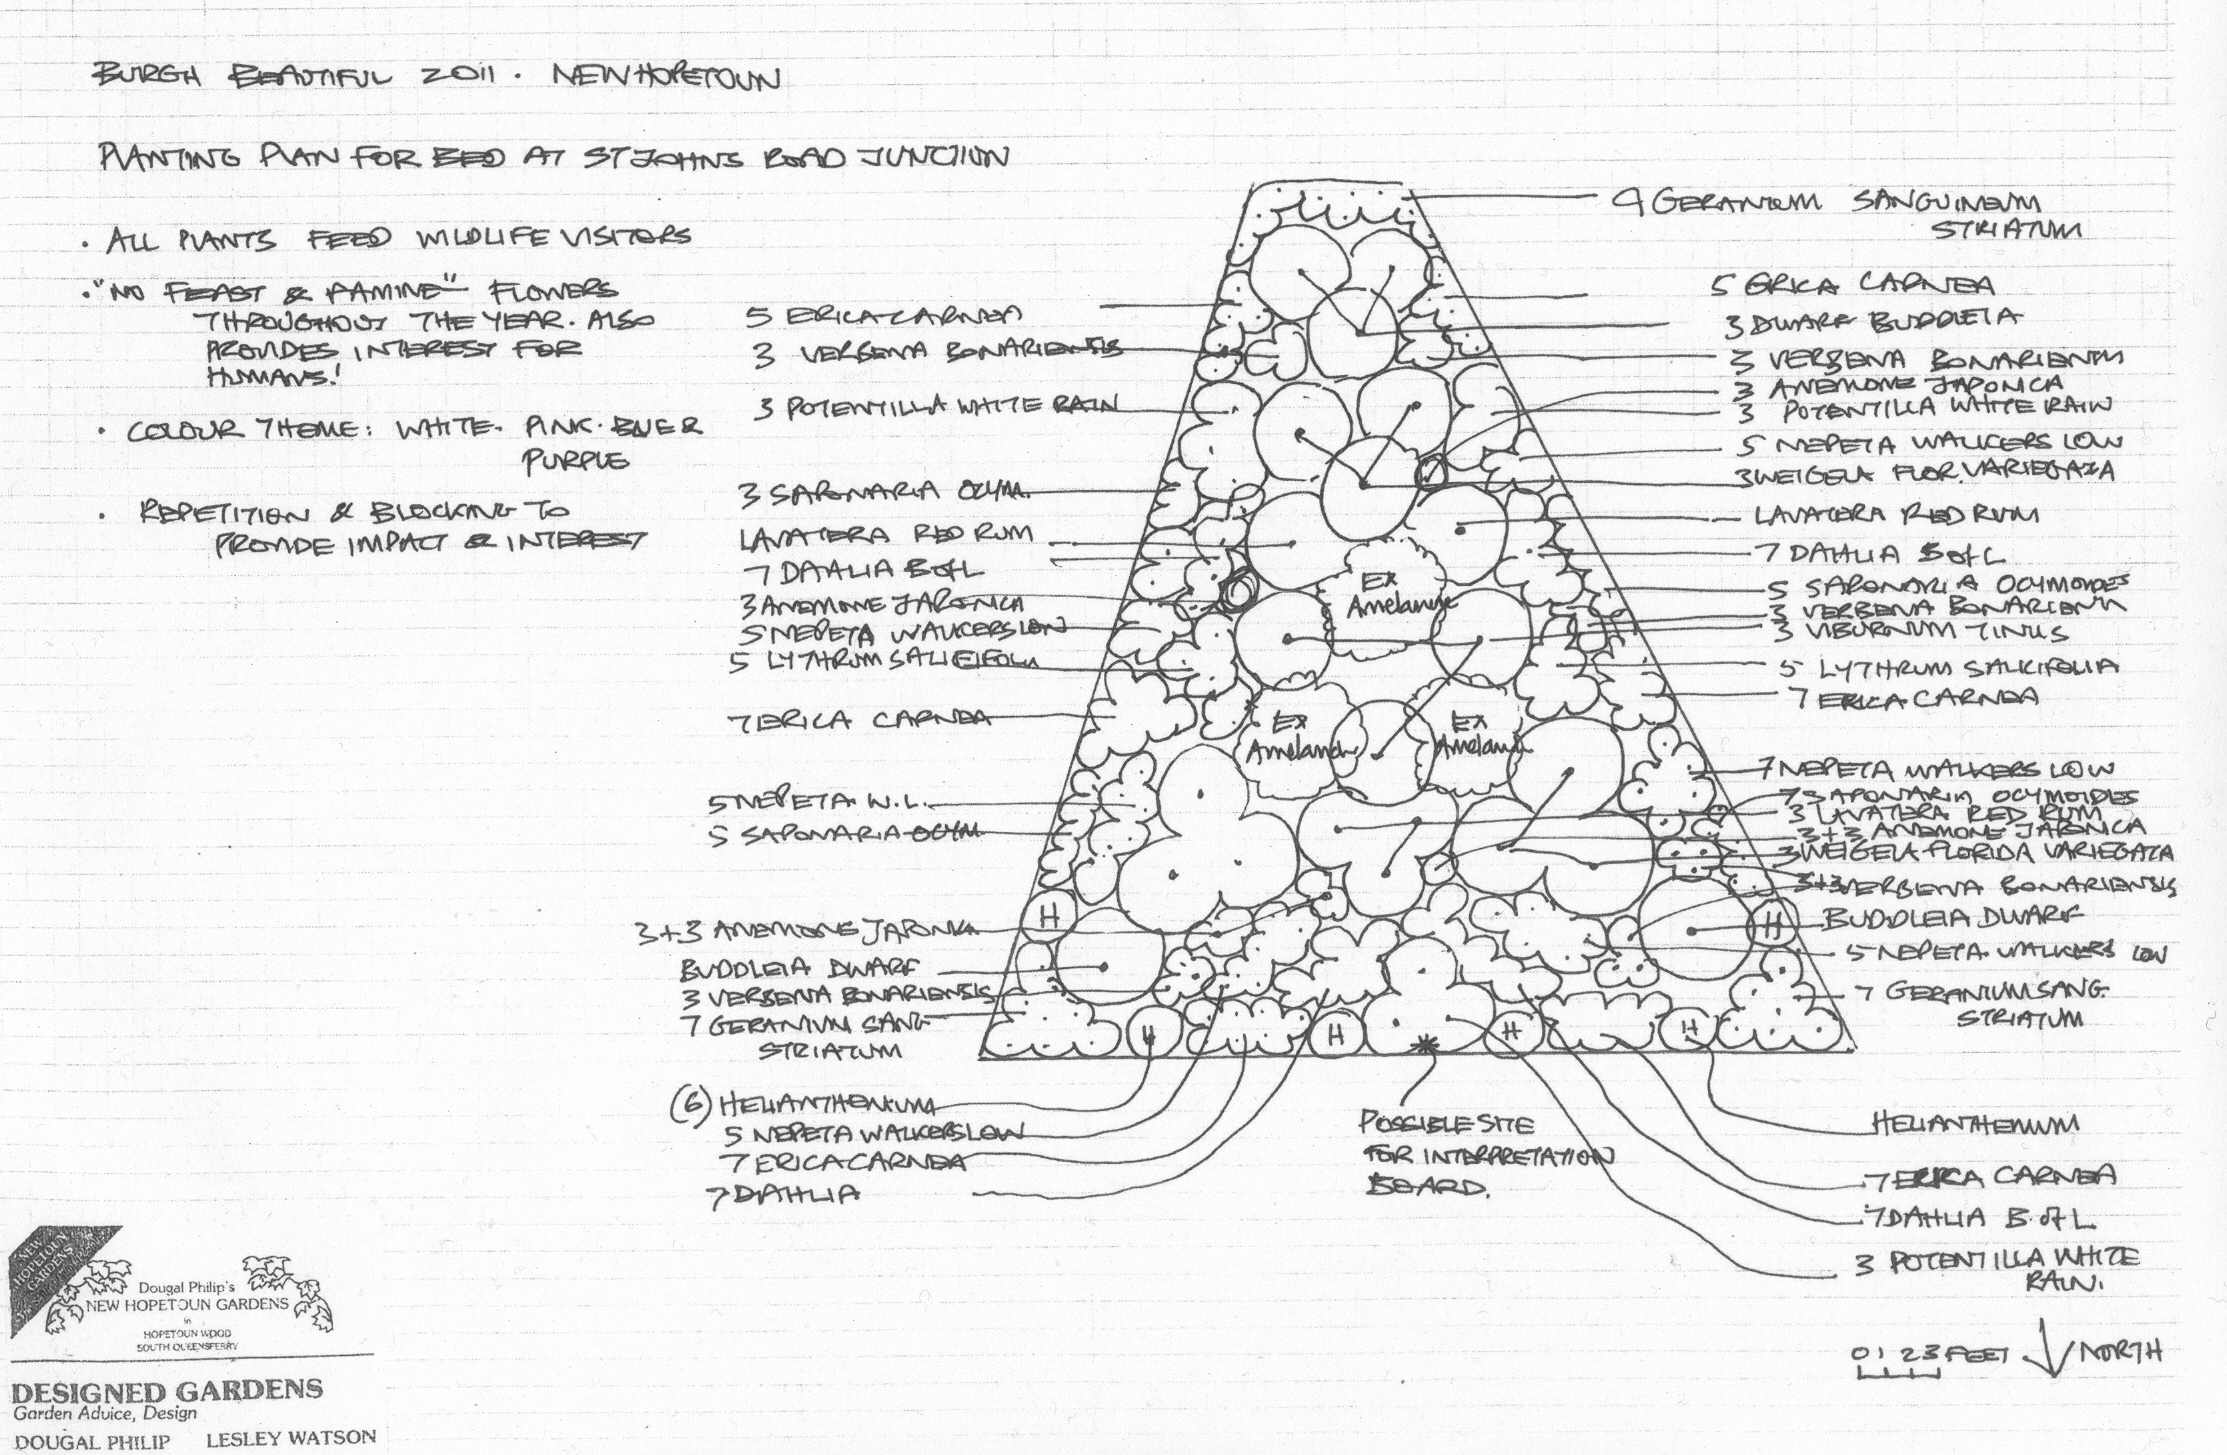 BURGH BEAUTIFUL 2011. NEWHOPETOUN
PLANTING PLAN FOR BED AT ST JOHNS ROAD JUNCTION
· ALL PLANTS FEED WILDLIFE VISITORS
· "NO FEAST & FAMINE" FLOWERS
THROUGHOUT THE YEAR. ALSO
PROVIDES INTEREST FOR
HUMANS!
· COLOUR THEME: WHITE. PINK. BLUE &
PURPLE
· REPETITION & BLOCKING TO
PROVIDE IMPACT & INTEREST
5 ERICA CARNEA
3 VERBENA BONARIENSIS
3 POTENTILLA WHITE RAIN
3 SAPONARIA OCYM.
LAVATERA RED RUM
7 DAHLIA B of L
3 ANEMONE JAPONICA
5 NEPETA WALKERS LOW
5 LYTHRUM SALICIFOLIA
7 ERICA CARNEA
5 NEPETA W.L.
5 SAPONARIA OCYM
3+3 ANEMONE JAPONICA
BUDDLEIA DWARF
3 VERBENA BONARIENSIS
7 GERANIUM SANG
STRIATUM
(6) HELIANTHEMUM
5 NEPETA WALKERS LOW
7 ERICA CARNEA
7 DAHLIA
Ex
Amelanch
Ex
Amelanch
Ex
Amelanch
H
H
H
H
H
H
POSSIBLE SITE
FOR INTERPRETATION
BOARD.
9 GERANIUM SANGUINEUM
STRIATUM
5 ERICA CARNEA
3 DWARF BUDDLEIA
3 VERBENA BONARIENSIS
3 ANEMONE JAPONICA
3 POTENTILLA WHITE RAIN
5 NEPETA WALKERS LOW
3 WEIGELA FLOR. VARIEGATA
LAVATERA RED RUM
7 DAHLIA B of L
5 SAPONARIA OCYMOIDES
3 VERBENA BONARIENSIS
3 VIBURNUM TINUS
5 LYTHRUM SALICIFOLIA
7 ERICA CARNEA
7 NEPETA WALKERS LOW
7 SAPONARIA OCYMOIDES
3 LAVATERA RED RUM
3+3 ANEMONE JAPONICA
3 WEIGELA FLORIDA VARIEGATA
3+3 VERBENA BONARIENSIS
BUDDLEIA DWARF
5 NEPETA WALKERS LOW
7 GERANIUM SANG.
STRIATUM
HELIANTHEMUM
7 ERICA CARNEA
7 DAHLIA B. of L
3 POTENTILLA WHITE
RAIN.
0 1 2 3 FEET
NORTH
NEW
HOPETOUN
GARDENS
Dougal Philip's
NEW HOPETOUN GARDENS
in
HOPETOUN WOOD
SOUTH QUEENSFERRY
DESIGNED GARDENS
Garden Advice, Design
DOUGAL PHILIP LESLEY WATSON